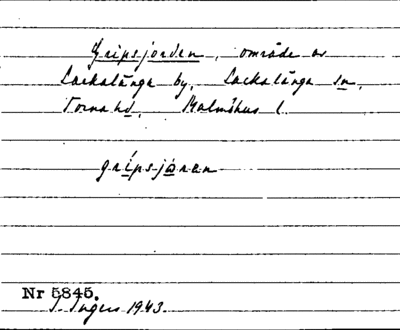 Gripsjorden, område av
Lackalänga by, Lackalänga sn,
Torna hd, Malmöhus l.
gripsjoren
Nr 5845.
Ingers 1943.